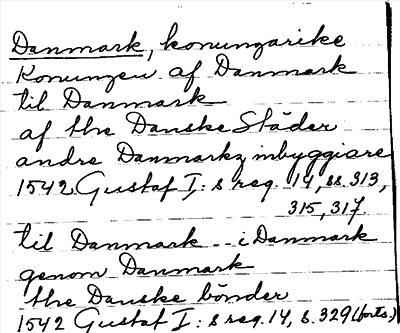 Danmark, konungarike
Konungen af Danmark
til Danmark
af the Danske Städer
andre Danmarkz inbyggiare
1542 Gustaf I:s reg. 14, ss. 313,
315, 317.
til Danmark - i Danmark
genom Danmark
the Danske bönder
1542 Gustaf I:s reg. 14, s. 329 (forts.)